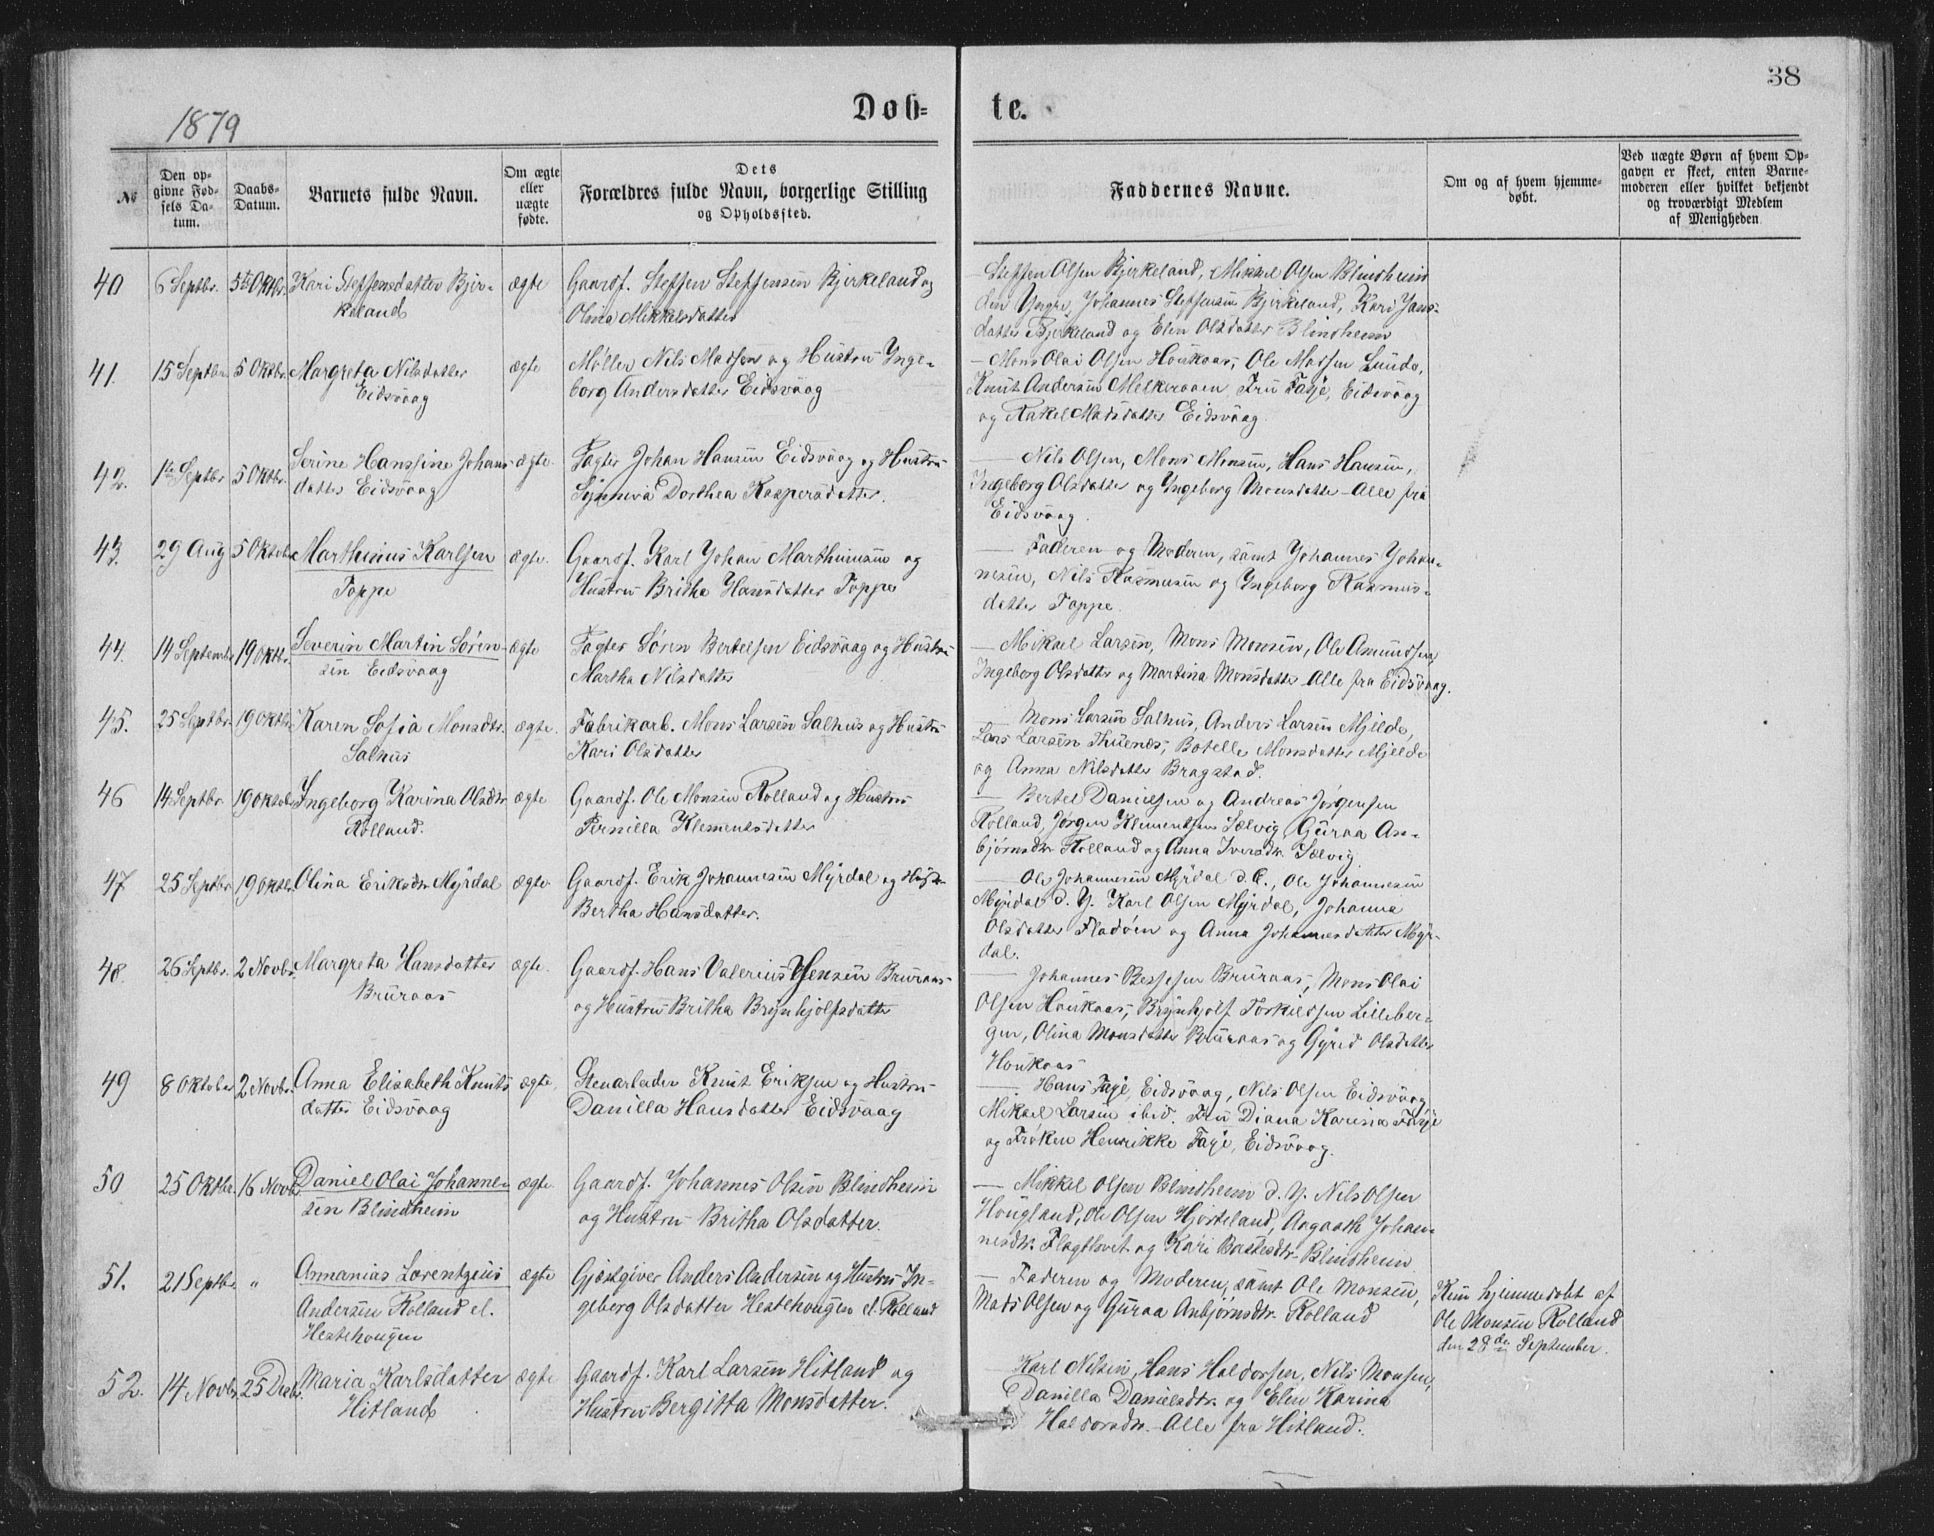 38
1879
Døb= te.
№
Den op-
givne Fød-
sels Da-
tum.
Daabs-
Datum.
Barnets fulde Navn.
Om ægte
eller
uægte
fødte.
Dets
Forældres fulde Navn, borgerlige Stilling
og Opholdssted.
Faddernes Navne.
Om og af hvem hjemme-
døbt.
Ved uægte Børn af hvem Op-
gaven er skeet, enten Barne-
moderen eller hvilket bekjendt
og troværdigt Medlem
af Menigheden
40 6 Septbr. 5te Oktbr. Kari Steffensdatter Bjir-
keland
ægte
Gaardf. Steffen Steffensen Bjirkeland og
Olina Mikkelsdatter
— Steffen Olsen Bjirkeland, Mikkel Olsen Blindheim
den Yngre, Johannes Steffensen Bjirkeland, Kari Jans-
datter Bjirkeland og Elen Olsdatter Blindheim
41. 15 Septbr. 5 Oktbr. Margreta Nilsdatter
Eidsvaag
ægte
Møller Nils Madsen og Hustru Inge-
borg Andersdatter Eidsvaag
— Mons Olai Olsen Houkaas, Ole Madsen Lunde,
Knut Andersen Melkeraaen, Fru Faye, Eidsvaag
og Rakel Madsdatter Eidsvaag.
42. 1te Septbr 5 Oktbr. Serine Hanssine Johans-
datter Eidsvaag
ægte.
Fagter Johan Hansen Eidsvaag og Hustru
Synneva Dorthea Kaspersdatter.
— Nils Olsen, Mons Monsen, Hans Hansen,
Ingeborg Olsdatter og Ingeborg Monsdatter - Alle fra
Eidsvaag.
43. 29 Aug 5 Oktobr Marthinus Karlsen
Toppe
ægte.
Gaardf. Karl Johan Marthinusen og
Hustru Britha Hansdatter Toppe
— Faderen og Moderen, samt Johannes Johan-
nesen, Nils Rasmusen og Ingeborg Rasmus-
datter Toppe.
44. 14 Septembr 19 Oktbr. Severin Martin Søren-
sen Eidsvaag
ægte
Fagter Søren Bertelsen Eidsvaag og Hustru
Martha Nilsdatter
— Mikael Larsen, Mons Monsen, Ole Amundsen,
Ingeborg Olsdatter og Martina Monsdatter - Alle fra Eidsvaag.
45. 25 Septbr. 19 Oktbr Karen Sofia Monsdtr.
Salhus
ægte.
Fabrikarb. Mons Larsen Salhus og Hustru
Kari Olsdatter
— Mons Larsen Salhus, Anders Larsen Mjelde,
Lars Larsen Thuenes, Botelle Monsdatter Mjelde
og Anna Nilsdatter Bragstad.
46 14 Septbr. 19 Oktobr Ingeborg Karina Olsdtr
Rolland.
ægte
Gaardf. Ole Monsen Rolland og Hustru
Pernilla Klementsdatter
— Bertel Danielsen og Andreas Jørgensen
Rolland, Jørgen Klementsen Sælvig, Guraa An-
bjørnsdtr Rolland og Anna Iversdtr. Sælvig.
47 25 Septbr 19 Oktbr Olina Eriksdtr. Myrdal
ægte
Gaardf. Erik Johannesen Myrdal og Hustr.
Bertha Hansdatter.
— Ole Johannesen Myrdal d. E., Ole Johannesen
Myrdal d. Y. Karl Olsen Myrdal, Johanna
Olsdatter Fladøen og Anna Johannesdatter Myr-
dal.
48. 26 Septbr. 2 Novbr. Margreta Hansdatter
Bruraas
ægte.
Gaardf. Hans Valerius Jensen Bruraas
og Hustru Britha Brynhjolfsdatter
— Johannes Bessesen Bruraas, Mons Olai
Olsen Houkaas, Brynhjolf Torkildsen Lilleber-
gen, Olina Monsdatter Bruraas og Gyrid Olsdatter
Houkaas
49 8 Oktober 2 Novbr. Anna Elisabeth Knuts-
datter Eidsvaag
ægte.
Stenarbeider Knut Eriksen og Hustru
Danilla Hansdatter Eidsvaag
— Hans Faye, Eidsvaag, Nils Olsen Eidsvaag,
Mikael Larsen ibid. Fru Diana Karina Faye
og Frøken Henrikke Faye, Eidsvaag.
50 25 Oktbr. 16 Novbr Daniel Olai Johanne-
sen Blindheim
ægte
Gaardf. Johannes Olsen Blindheim
og Hustru Britha Olsdatter.
— Mikkel Olsen Blindheim d. Y. Nils Olsen
Hougland, Ole Olsen Hjorteland, Aagaath Johan-
nesdtr. Flagtvet og Kari Bastesdtr. Blindheim
51. 21 Septbr „ Annanias Lorentzius
Andersen Rolland el.
Hestehougen
ægte
Gjæstgiver Anders Andersen og Hustru In-
geborg Olsdatter Hestehougen el. Rolland
— Faderen og Moderen, samt Ole Monsen,
Mads Olsen og Guraa Anbjørnsdtr. Rolland
Kun hjemmedøbt af
Ole Monsen Rolland
den 28de September.
52. 14 Novbr 25 Decbr. Maria Karlsdatter
Hitland
ægte
Gaardf. Karl Larsen Hitland og
Hustru Bergitta Monsdatter.
— Karl Nilsen, Hans Haldorsen, Nils Monsen,
Danilla Danielsdtr. og Elen Karina
Haldorsdtr. Alle fra Hitland.